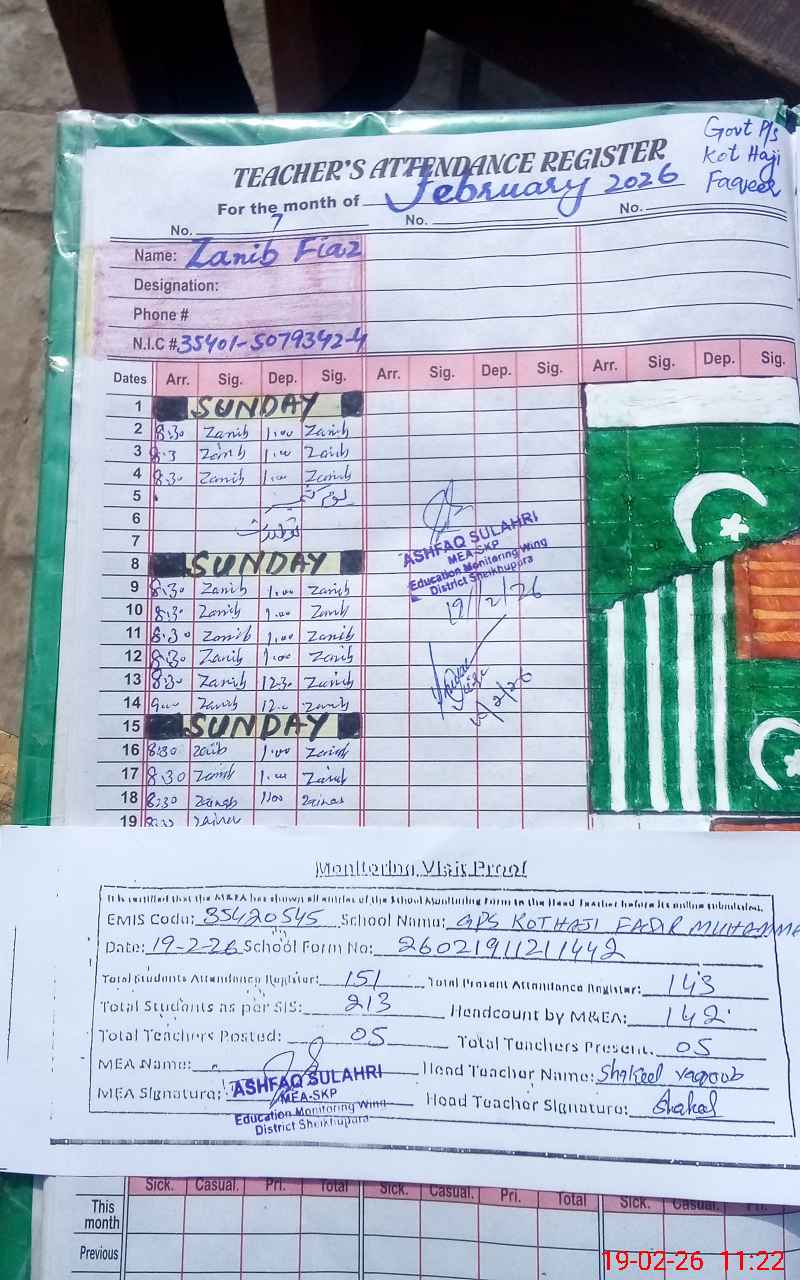 Govt P/s
Kot Haji
Faqeer
TEACHER'S ATTENDANCE REGISTER
For the month of February 2026
No. 7 No. No.
Name: Zanib Fiaz
Designation:
Phone #
N.I.C # 35401-5079342-4
Dates Arr. Sig. Dep. Sig. Arr. Sig. Dep. Sig. Arr. Sig. Dep. Sig.
1 SUNDAY
2 8:30 Zanib 1:00 Zanib
3 8:3 Zanib 1:00 Zanib
4 8:30 Zanib 1:00 Zanib
5
6
7
8 SUNDAY
9 8:30 Zanib 1:00 Zanib
10 8:30 Zanib 1:00 Zanib
11 8:30 Zanib 1:00 Zanib
12 8:30 Zanib 1:00 Zanib
13 8:30 Zanib 12:30 Zanib
14 9:00 Zanib 12:0 Zanib
15 SUNDAY
16 8:30 Zanib 1:00 Zanib
17 8:30 Zanib 1:00 Zanib
18 8:30 Zainab 1:00 Zainab
19 8:30
ASHFAQ SULAHRI
MEA-SKP
Education Monitoring Wing
District Sheikhupura
19/2/26
Monitoring Visit Proof
It is certified that the M&EA has shown all entries of the School Monitoring Form to the Head Teacher before its online submission.
EMIS Code: 35420545 School Name: GPS KOT HAJI FAQIR MUHAMMA
Date: 19-2-26 School Form No: 26021911211442
Total Students Attendance Register: 151 Total Present Attendance Register: 143
Total Students as per SIS: 213 Headcount by M&EA: 142
Total Teachers Posted: 05 Total Teachers Present: 05
MEA Name: Head Teacher Name: Shakeel yaqoob
MEA Signature: Head Teacher Signature: Shakeel
ASHFAQ SULAHRI
MEA-SKP
Education Monitoring Wing
District Sheikhupura
Sick. Casual. Pri. Total Sick. Casual. Pri. Total Sick. Casual. Pri.
This month
Previous
19-02-26 11:22